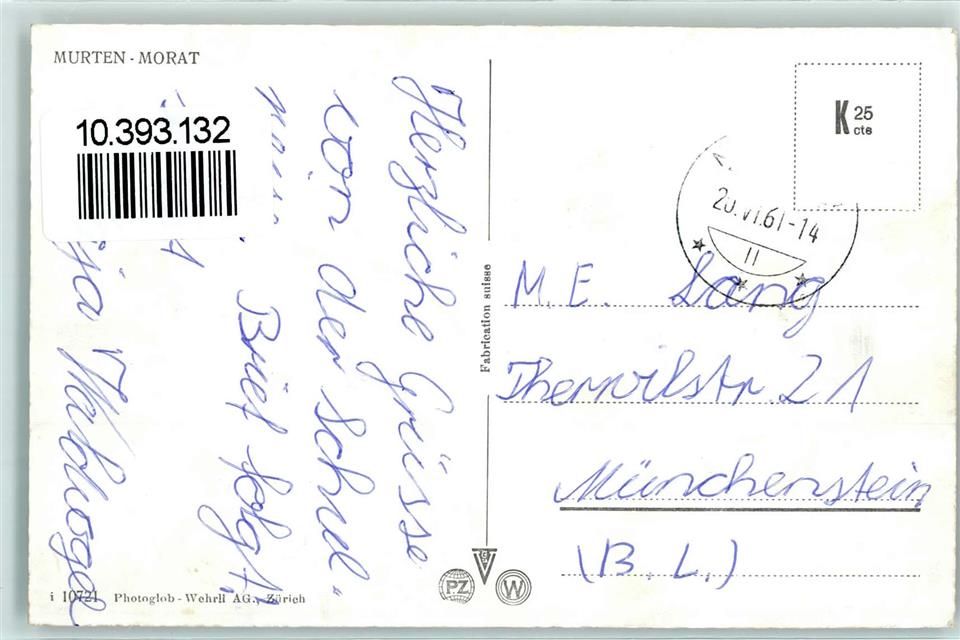 MURTEN - MORAT
10.393.132
Herzliche Grüsse
von der Schul-
Brief folgt.
K 25
cts
20.VI.61-14
11
M. E. Lang
Therwilstr. 21
Münchenstein
(B. L.)
Fabrication suisse
PZ
W
i 10721 Photoglob - Wehrli AG., Zürich